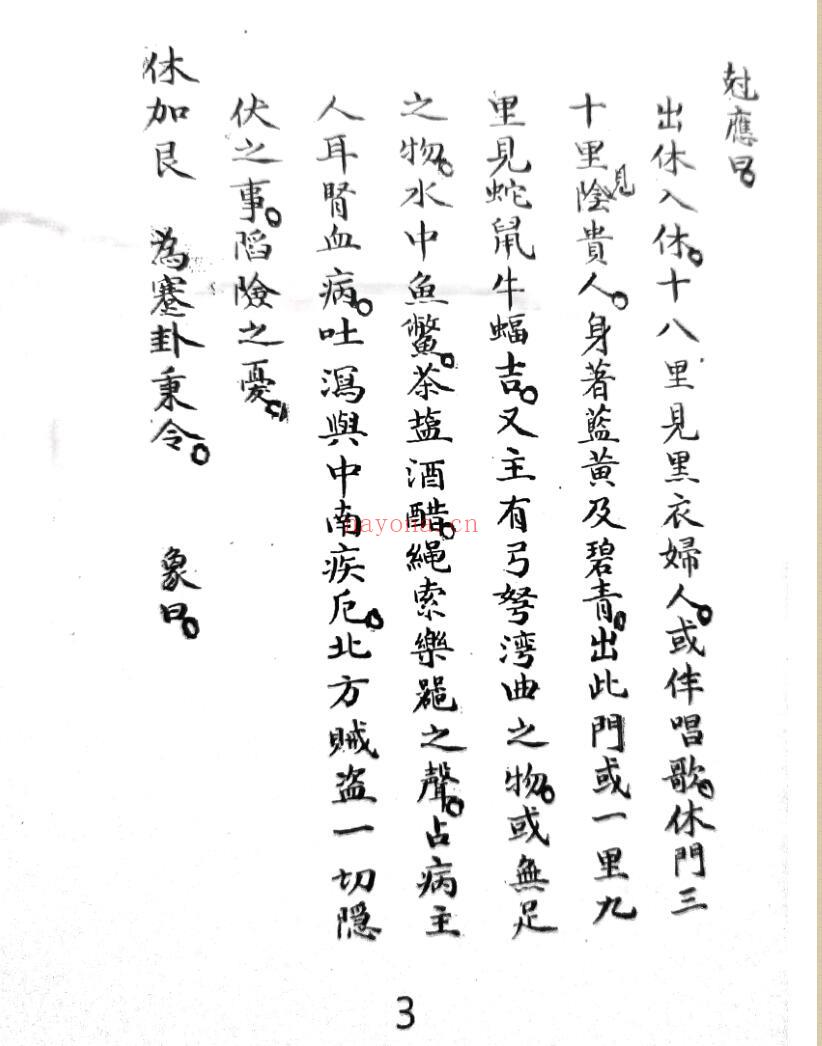 尅應曰。
出休入休。十八里見黑衣婦人。或伴唱歌。休門三
十里見陰貴人。身著藍黃及碧青。出此門或一里九
里見蛇鼠牛蝠吉。又主有弓弩湾曲之物。或無足
之物。水中魚鱉。茶盐酒醋。繩索樂噐之聲。占病主
人耳腎血病。吐瀉與中南疾厄。北方賊盜一切隱
伏之事。陷險之憂。
休加艮 為蹇卦秉令。 象曰。
3